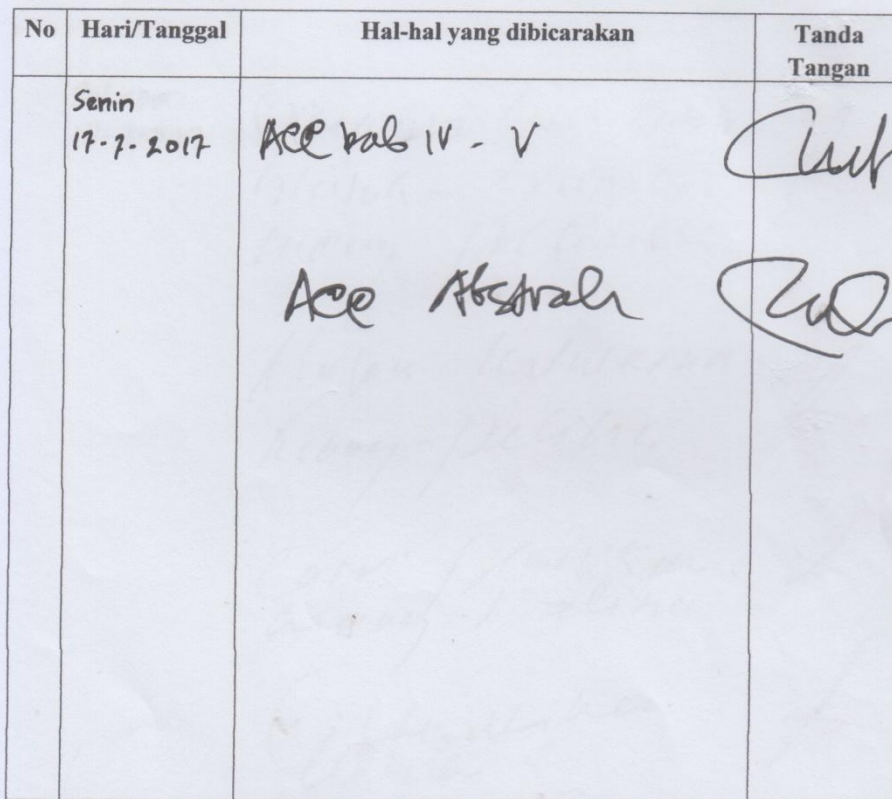 No Hari/Tanggal Hal-hal yang dibicarakan Tanda
Tangan
Senin
17-7-2017 Acc bab IV - V
Acc Abstrak